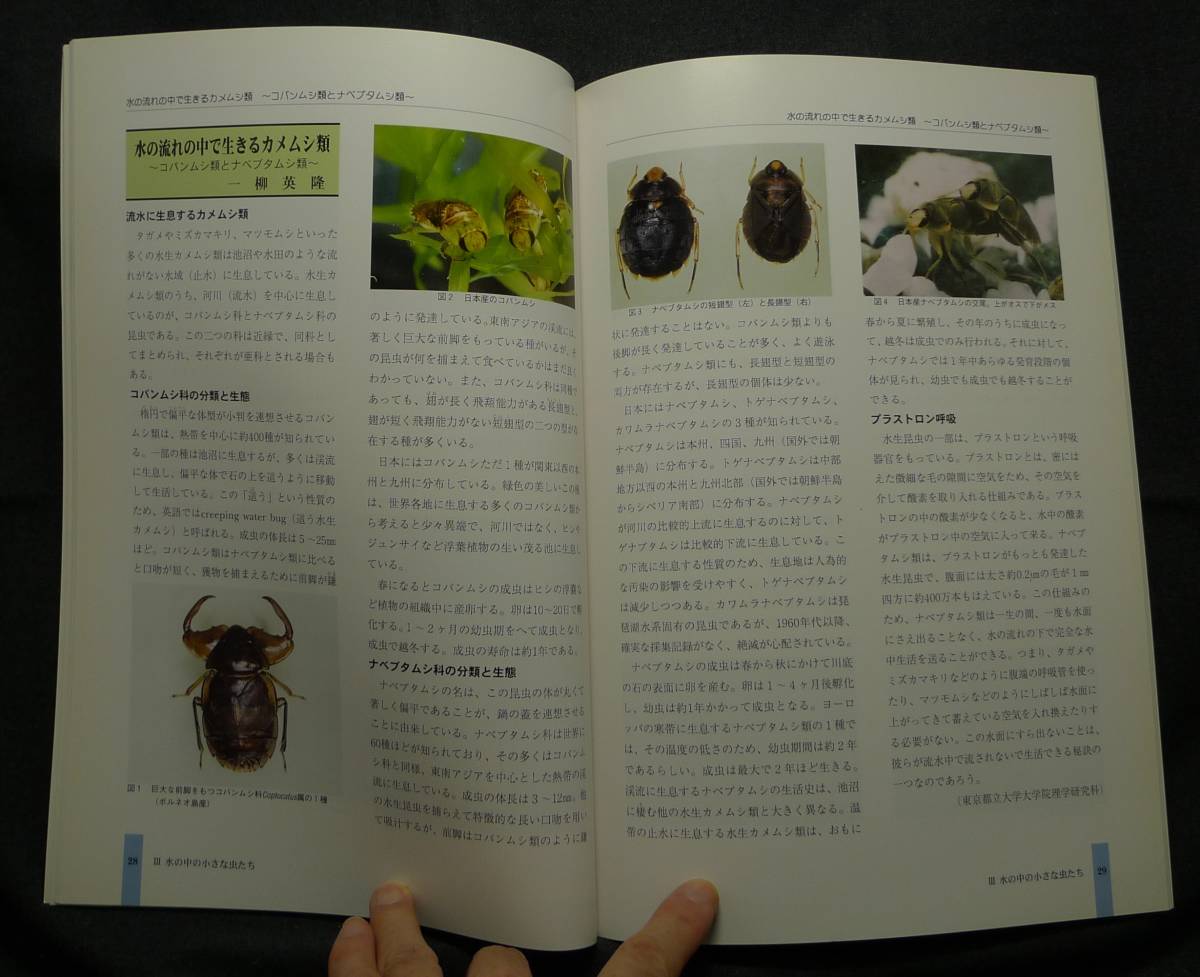 水の流れの中で生きるカメムシ類 ～コバンムシ類とナベブタムシ類～
水の流れの中で生きるカメムシ類
～コバンムシ類とナベブタムシ類～
一 柳 英 隆
流水に生息するカメムシ類
タガメやミズカマキリ、マツモムシといった
多くの水生カメムシ類は池沼や水田のような流
れがない水域（止水）に生息している。水生カ
メムシ類のうち、河川（流水）を中心に生息し
ているのが、コバンムシ科とナベブタムシ科の
昆虫である。この二つの科は近縁で、同科とし
てまとめられ、それぞれが亜科とされる場合も
ある。
コバンムシ科の分類と生態
楕円で偏平な体型が小判を連想させるコバン
ムシ類は、熱帯を中心に約400種が知られてい
る。一部の種は池沼に生息するが、多くは渓流
に生息し、偏平な体で石の上を這うように移動
して生活している。この「這う」という性質の
ため、英語ではcreeping water bug（這う水生
カメムシ）と呼ばれる。成虫の体長は5～25㎜
ほど。コバンムシ類はナベブタムシ類に比べる
と口吻が短く、獲物を捕まえるために前脚が鎌
図1 巨大な前脚をもつコバンムシ科Coptocatus属の1種
（ボルネオ島産）
28 Ⅲ 水の中の小さな虫たち
図2 日本産のコバンムシ
のように発達している。東南アジアの渓流には、
著しく巨大な前脚をもっている種がいるが、そ
の昆虫が何を捕まえて食べているかはまだ良く
わかっていない。また、コバンムシ科は同種で
あっても、翅が長く飛翔能力がある長翅型と、
翅が短く飛翔能力がない短翅型の二つの型が存
在する種が多くいる。
日本にはコバンムシただ1種が関東以西の本
州と九州に分布している。緑色の美しいこの種
は、世界各地に生息する多くのコバンムシ類か
ら考えると少々異端で、河川ではなく、ヒシや
ジュンサイなど浮葉植物の生い茂る池に生息し
ている。
春になるとコバンムシの成虫はヒシの浮嚢な
ど植物の組織中に産卵する。卵は10～20日で孵
化する。1～2ヶ月の幼虫期をへて成虫となり、
成虫で越冬する。成虫の寿命は約1年である。
ナベブタムシ科の分類と生態
ナベブタムシの名は、この昆虫の体が丸くて
著しく偏平であることが、鍋の蓋を連想させる
ことに由来している。ナベブタムシ科は世界に
60種ほどが知られており、その多くはコバンム
シ科と同様、東南アジアを中心とした熱帯の渓
流に生息している。成虫の体長は3～12㎜。他
の水生昆虫を捕らえて特徴的な長い口吻を用い
て吸汁するが、前脚はコバンムシ類のように鎌
水の流れの中で生きるカメムシ類 ～コバンムシ類とナベブタムシ類～
図3 ナベブタムシの短翅型（左）と長翅型（右）
状に発達することはない。コバンムシ類よりも
後脚が長く発達していることが多く、よく遊泳
する。ナベブタムシ類にも、長翅型と短翅型の
両方が存在するが、長翅型の個体は少ない。
日本にはナベブタムシ、トゲナベブタムシ、
カワムラナベブタムシの3種が知られている。
ナベブタムシは本州、四国、九州（国外では朝
鮮半島）に分布する。トゲナベブタムシは中部
地方以西の本州と九州北部（国外では朝鮮半島
からシベリア南部）に分布する。ナベブタムシ
が河川の比較的上流に生息するのに対して、ト
ゲナブタムシは比較的下流に生息している。こ
の下流に生息する性質のため、生息地は人為的
な汚染の影響を受けやすく、トゲナベブタムシ
は減少しつつある。カワムラナベブタムシは琵
琶湖水系固有の昆虫であるが、1960年代以降、
確実な採集記録がなく、絶滅が心配されている。
ナベブタムシの成虫は春から秋にかけて川底
の石の表面に卵を産む。卵は1～4ヶ月後孵化
し、幼虫は約1年かかって成虫となる。ヨーロ
ッパの寒帯に生息するナベブタムシ類の1種で
は、その温度の低さのため、幼虫期間は約2年
であるらしい。成虫は最大で2年ほど生きる。
渓流に生息するナベブタムシの生活史は、池沼
に棲む他の水生カメムシ類と大きく異なる。温
帯の止水に生息する水生カメムシ類は、おもに
図4 日本産ナベブタムシの交尾。上がオスで下がメス
春から夏に繁殖し、その年のうちに成虫になっ
て、越冬は成虫でのみ行われる。それに対して、
ナベブタムシでは1年中あらゆる発育段階の個
体が見られ、幼虫でも成虫でも越冬することが
できる。
プラストロン呼吸
水生昆虫の一部は、プラストロンという呼吸
器官をもっている。プラストロンとは、密には
えた微細な毛の隙間に空気をため、その空気を
介して酸素を取り入れる仕組みである。プラス
トロンの中の酸素が少なくなると、水中の酸素
がプラストロン中の空気に入って来る。ナベブ
タムシ類は、プラストロンがもっとも発達した
水生昆虫で、腹面には太さ約0.2μmの毛が1㎜
四方に約400万本もはえている。この仕組みの
ため、ナベブタムシ類は一生の間、一度も水面
にさえ出ることなく、水の流れの下で完全な水
中生活を送ることができる。つまり、タガメや
ミズカマキリなどのように腹端の呼吸管を使っ
たり、マツモムシなどのようにしばしば水面に
上がってきて蓄えている空気を入れ換えたりす
る必要がない。この水面にすら出ないことは、
彼らが流水中で流されないで生活できる秘訣の
一つなのであろう。
（東京都立大学大学院理学研究科）
Ⅲ 水の中の小さな虫たち 29